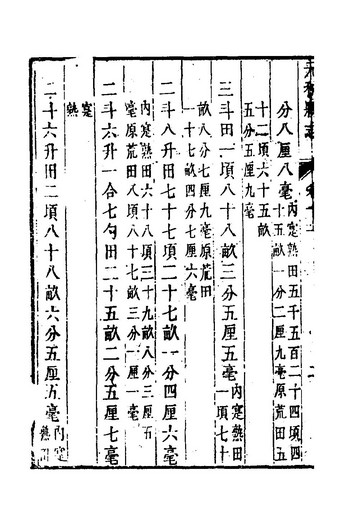 分八厘八毫
內蹇熟田五千五百二十四頃四
十五畝一分二厘九毫原荒田五
十二頃六十五畝
五分五厘九毫
三斗田一頃八十八畝三分五厘五毫
內蹇熟田
一頃七十
畝八分七厘九毫原荒田
一十七畝四分七厘六毫
二斗八升田七十七頃二十七畝一分四厘六毫
內蹇熟田六十八頃三十九畝八分三厘五
毫原荒田八頃八十七畝三分一厘一毫
二斗六升一合七勺田二十五畝二分五厘七毫
蹇
熟
二斗六升田二頃八十八畝六分五厘五毫
內蹇
熟田